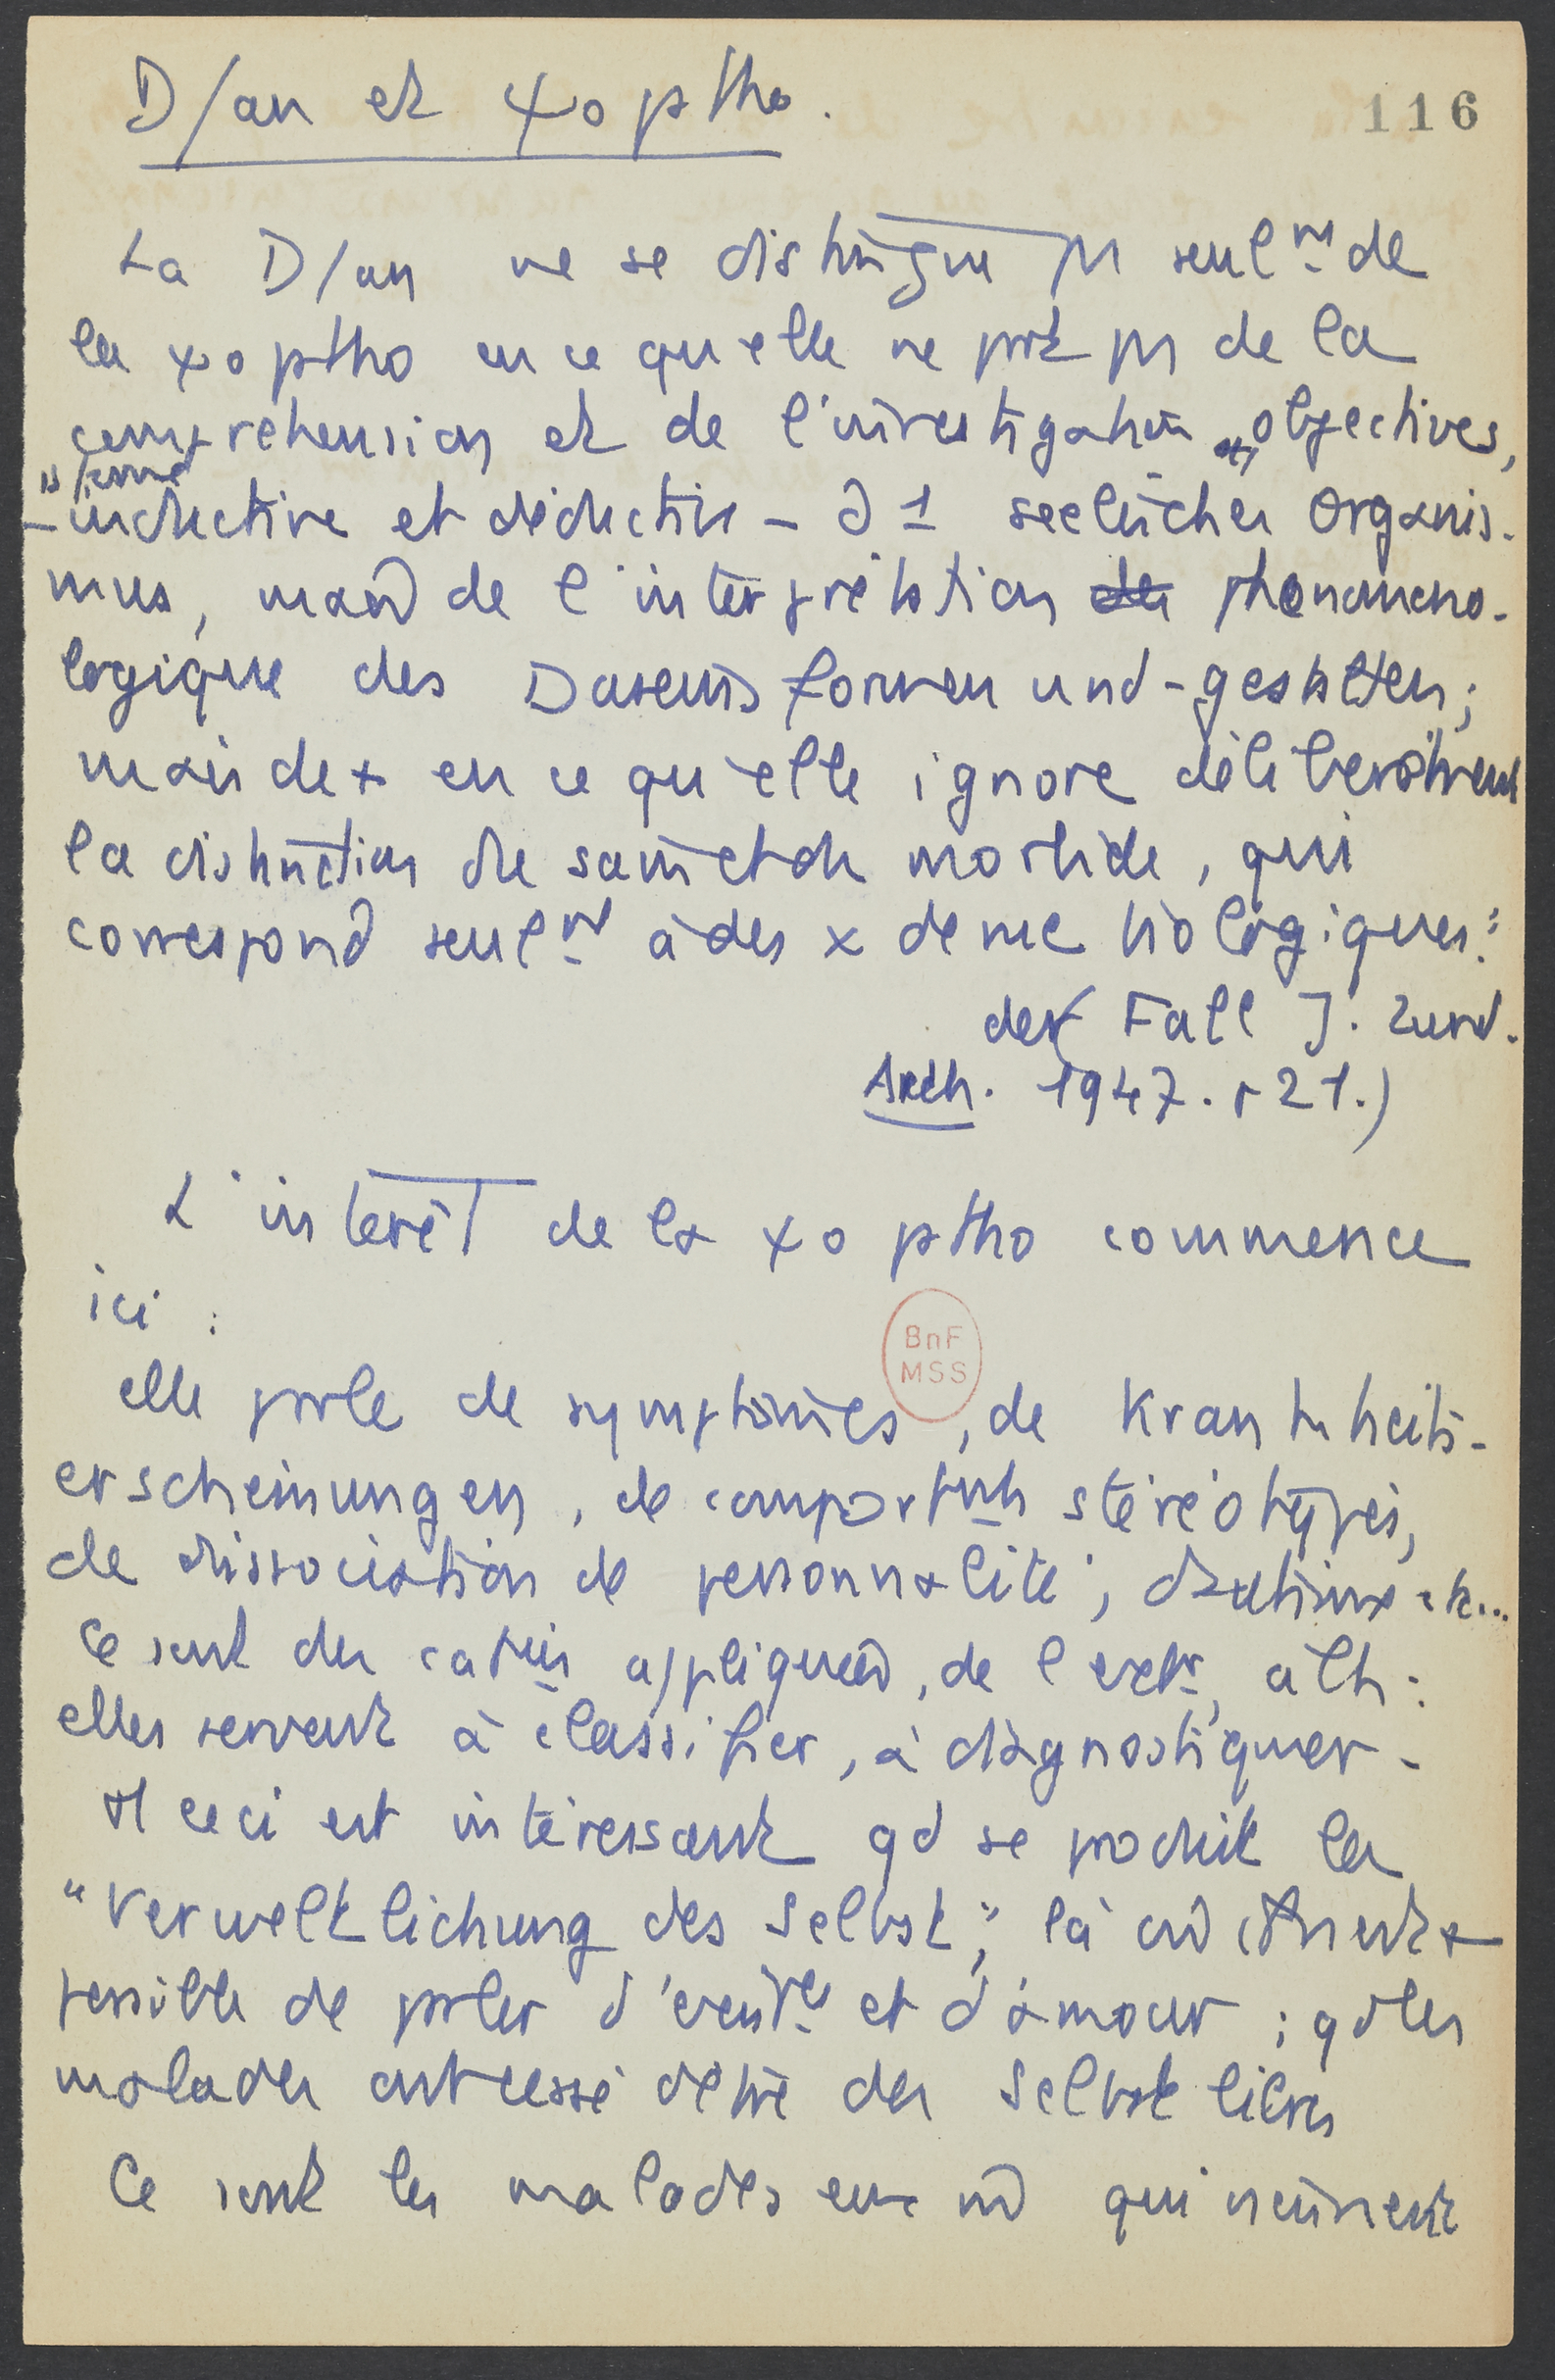 D/an et ψo ptho.
116
La D/an ne se distingue pas seulmt de
la ψo ptho en ce qu'elle ne part pas de la
compréhension et de l'investigation objectives,
– inductive et déductive – d 1 seelischen Organis-
mus, mais de l'interprétation phénoméno-
logique des Daseinsformen und -gestalten;
mais de + en ce qu'elle ignore délibérément
la distinction du sain et du morbide, qui
correspond seulmt à des x de vue biologiques.
der Fall J. Zund.
Arch. 1947. p 21.)
L'intérêt de la ψo ptho commence
ici :
elle parle de symptômes, de Krankheits-
erscheinungen, de comportmts stéréotypés,
de dissociation de personnalité, d'autisme etc...
Ce sont des appliquées, de l'extr, à
elles servent à classifier, à diagnostiquer.
Et ceci est intéressant qd se produit la
"Verweltlichung des Selbst"; là où n'est +
possible de parler d' et d'amour ; qd les
malades ont cessé d'être des Selbst libres
Ce sont les malades eux m̂ qui